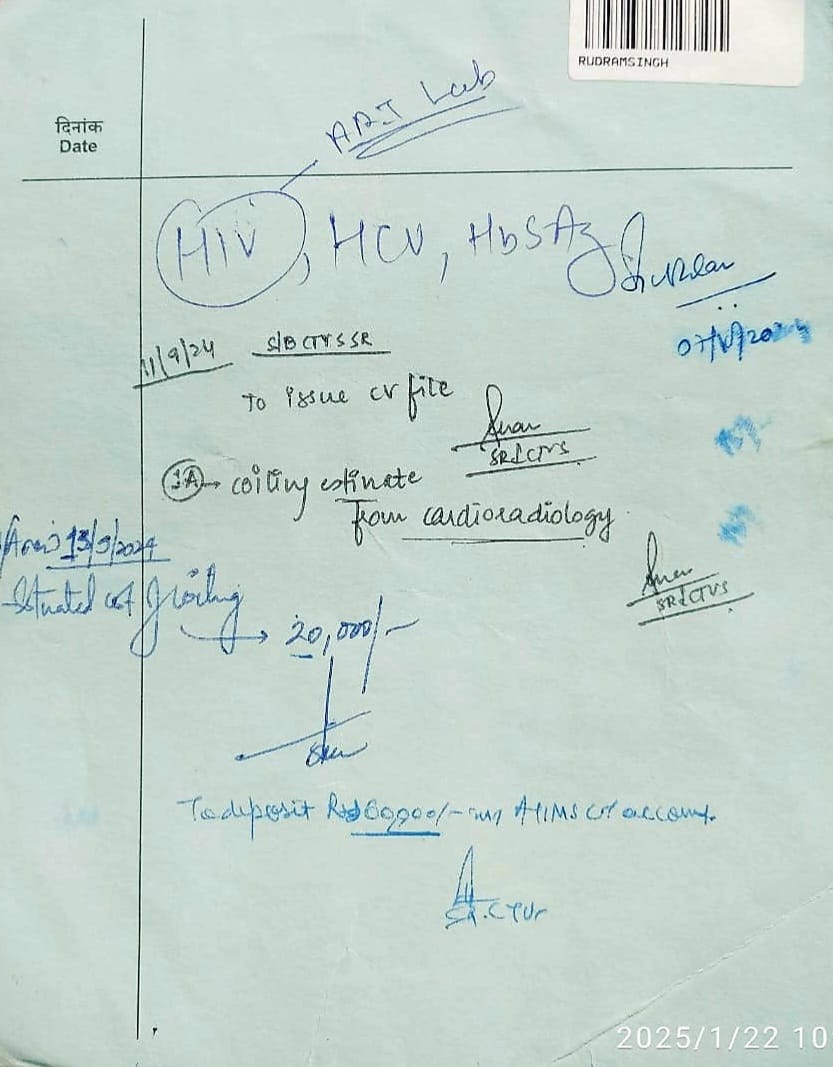 RUDRAMSINGH
दिनांक
Date
ART Lab
HIV, HCV, HbSAg
11/9/24 S/B CTVS SR
To issue cv file
SR CTVS
coiling estimate
from cardioradiology
13/9/2024
SR CTVS
Estimated cost of coiling
→ 20,000/-
To deposit Rs 60,000/- in AIIMS CV account.
SR. CTVS
2025/1/22 10